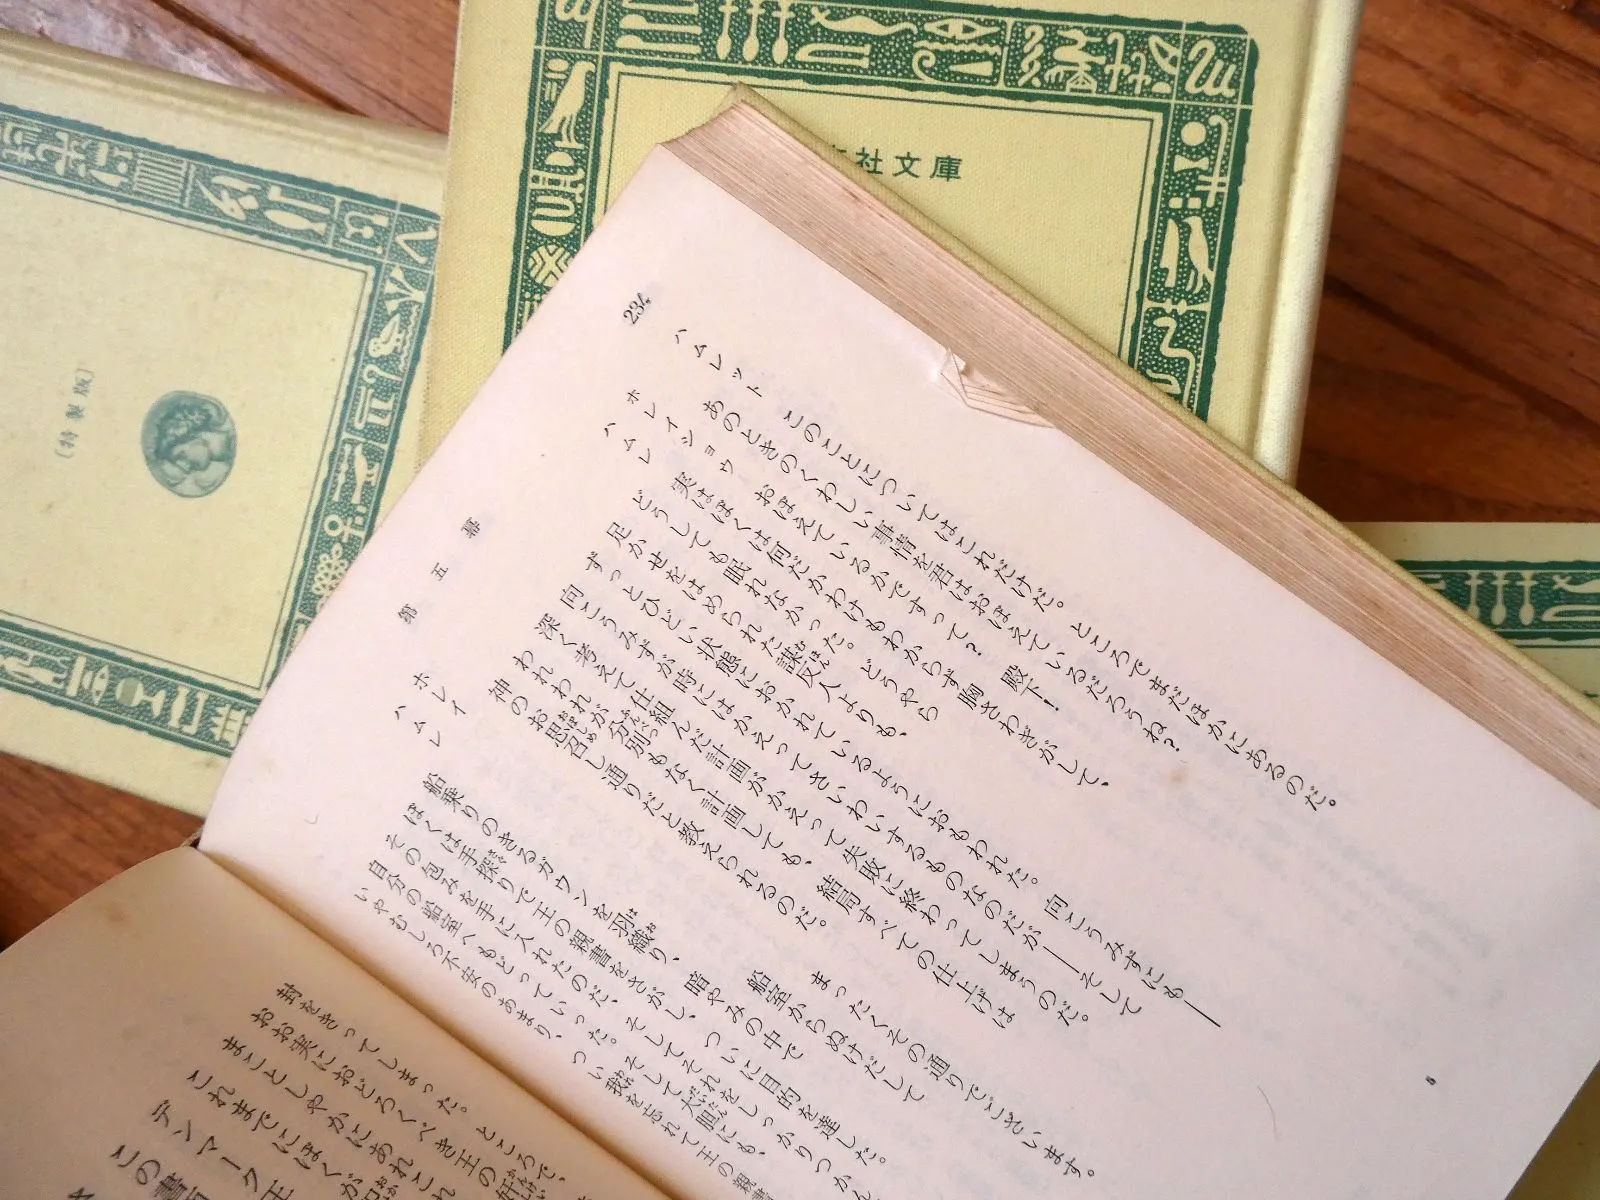 社文庫
〔特製版〕
234
ハムレット このことについてはこれだけだ。ところでまだほかにあるのだ。
あのときのくわしい事情を君はおぼえているだろうね?
ホレイショウ おぼえているかですって? 殿下!
ハムレ 実はぼくは何だかわけもわからず胸さわぎがして、
どうしても眠れなかった。どうやら
足かせをはめられた謀反人よりも、
ずっとひどい状態におかれているようにおもわれた。向こうみずにも——
向こうみずが時にはかえってさいわいするものなのだが——そして
深く考えて仕組んだ計画がかえって失敗に終わってしまうのだ。
われわれが分別もなく計画しても、結局すべての仕上げは
神のお思召し通りだと教えられるのだ。
ホレイ まったくその通りでございます。
ハムレ 船室からぬけだして
船乗りのきるガウンを羽織り、暗やみの中で
ぼくは手探りで王の親書をさがし、ついに目的を達した。
その包みを手に入れたのだ、そしてそれをしっかりつかん
自分の船室へもどっていった。そして大胆にも、
いやむしろ不安のあまり、つい我を忘れて王の親書
第五幕
5
封をきってしまった。ところで、
おお実におどろくべき王の奸
まことしやかにあれこれ
これまでにぼくが
デンマーク王
この書